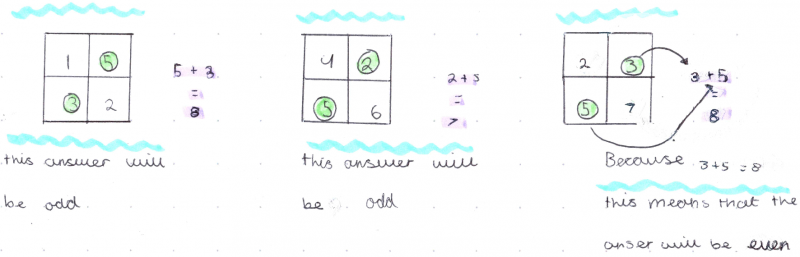 1 5
3 2
5 + 3
=
8
this answer will
be odd
4 2
5 6
2+5
=
7
this answer will
be odd
2 3
5 7
3 +5
=
8
Because 3+5 =8
this means that the
anser will be even